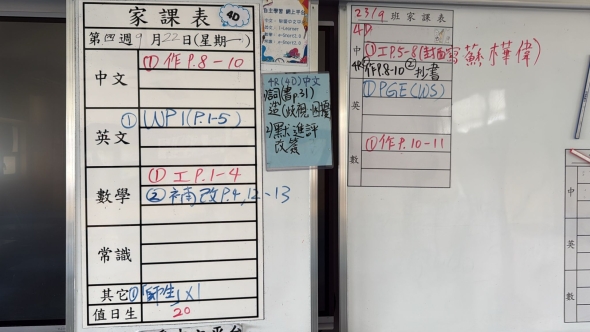 家課表 4D
第四週9月22日(星期一)
中文 ①作P.8-10
英文 ①WP1(P.1-5)
數學 ①工P.1-4
②補改P.4,12-13
常識
其它 ①
值日生 20
自主學習 網上平台
4R(4D)中文
詞(書p.31)
造(歧視、困擾)
2)默進評
改簽
23/9 班家課表
4D
中 ①工P.5-8(封面寫蘇樺偉)
4R ①作P.8-10 ②抄書
英 ①PGE(WS)
數 ①作P.10-11
中
英
數